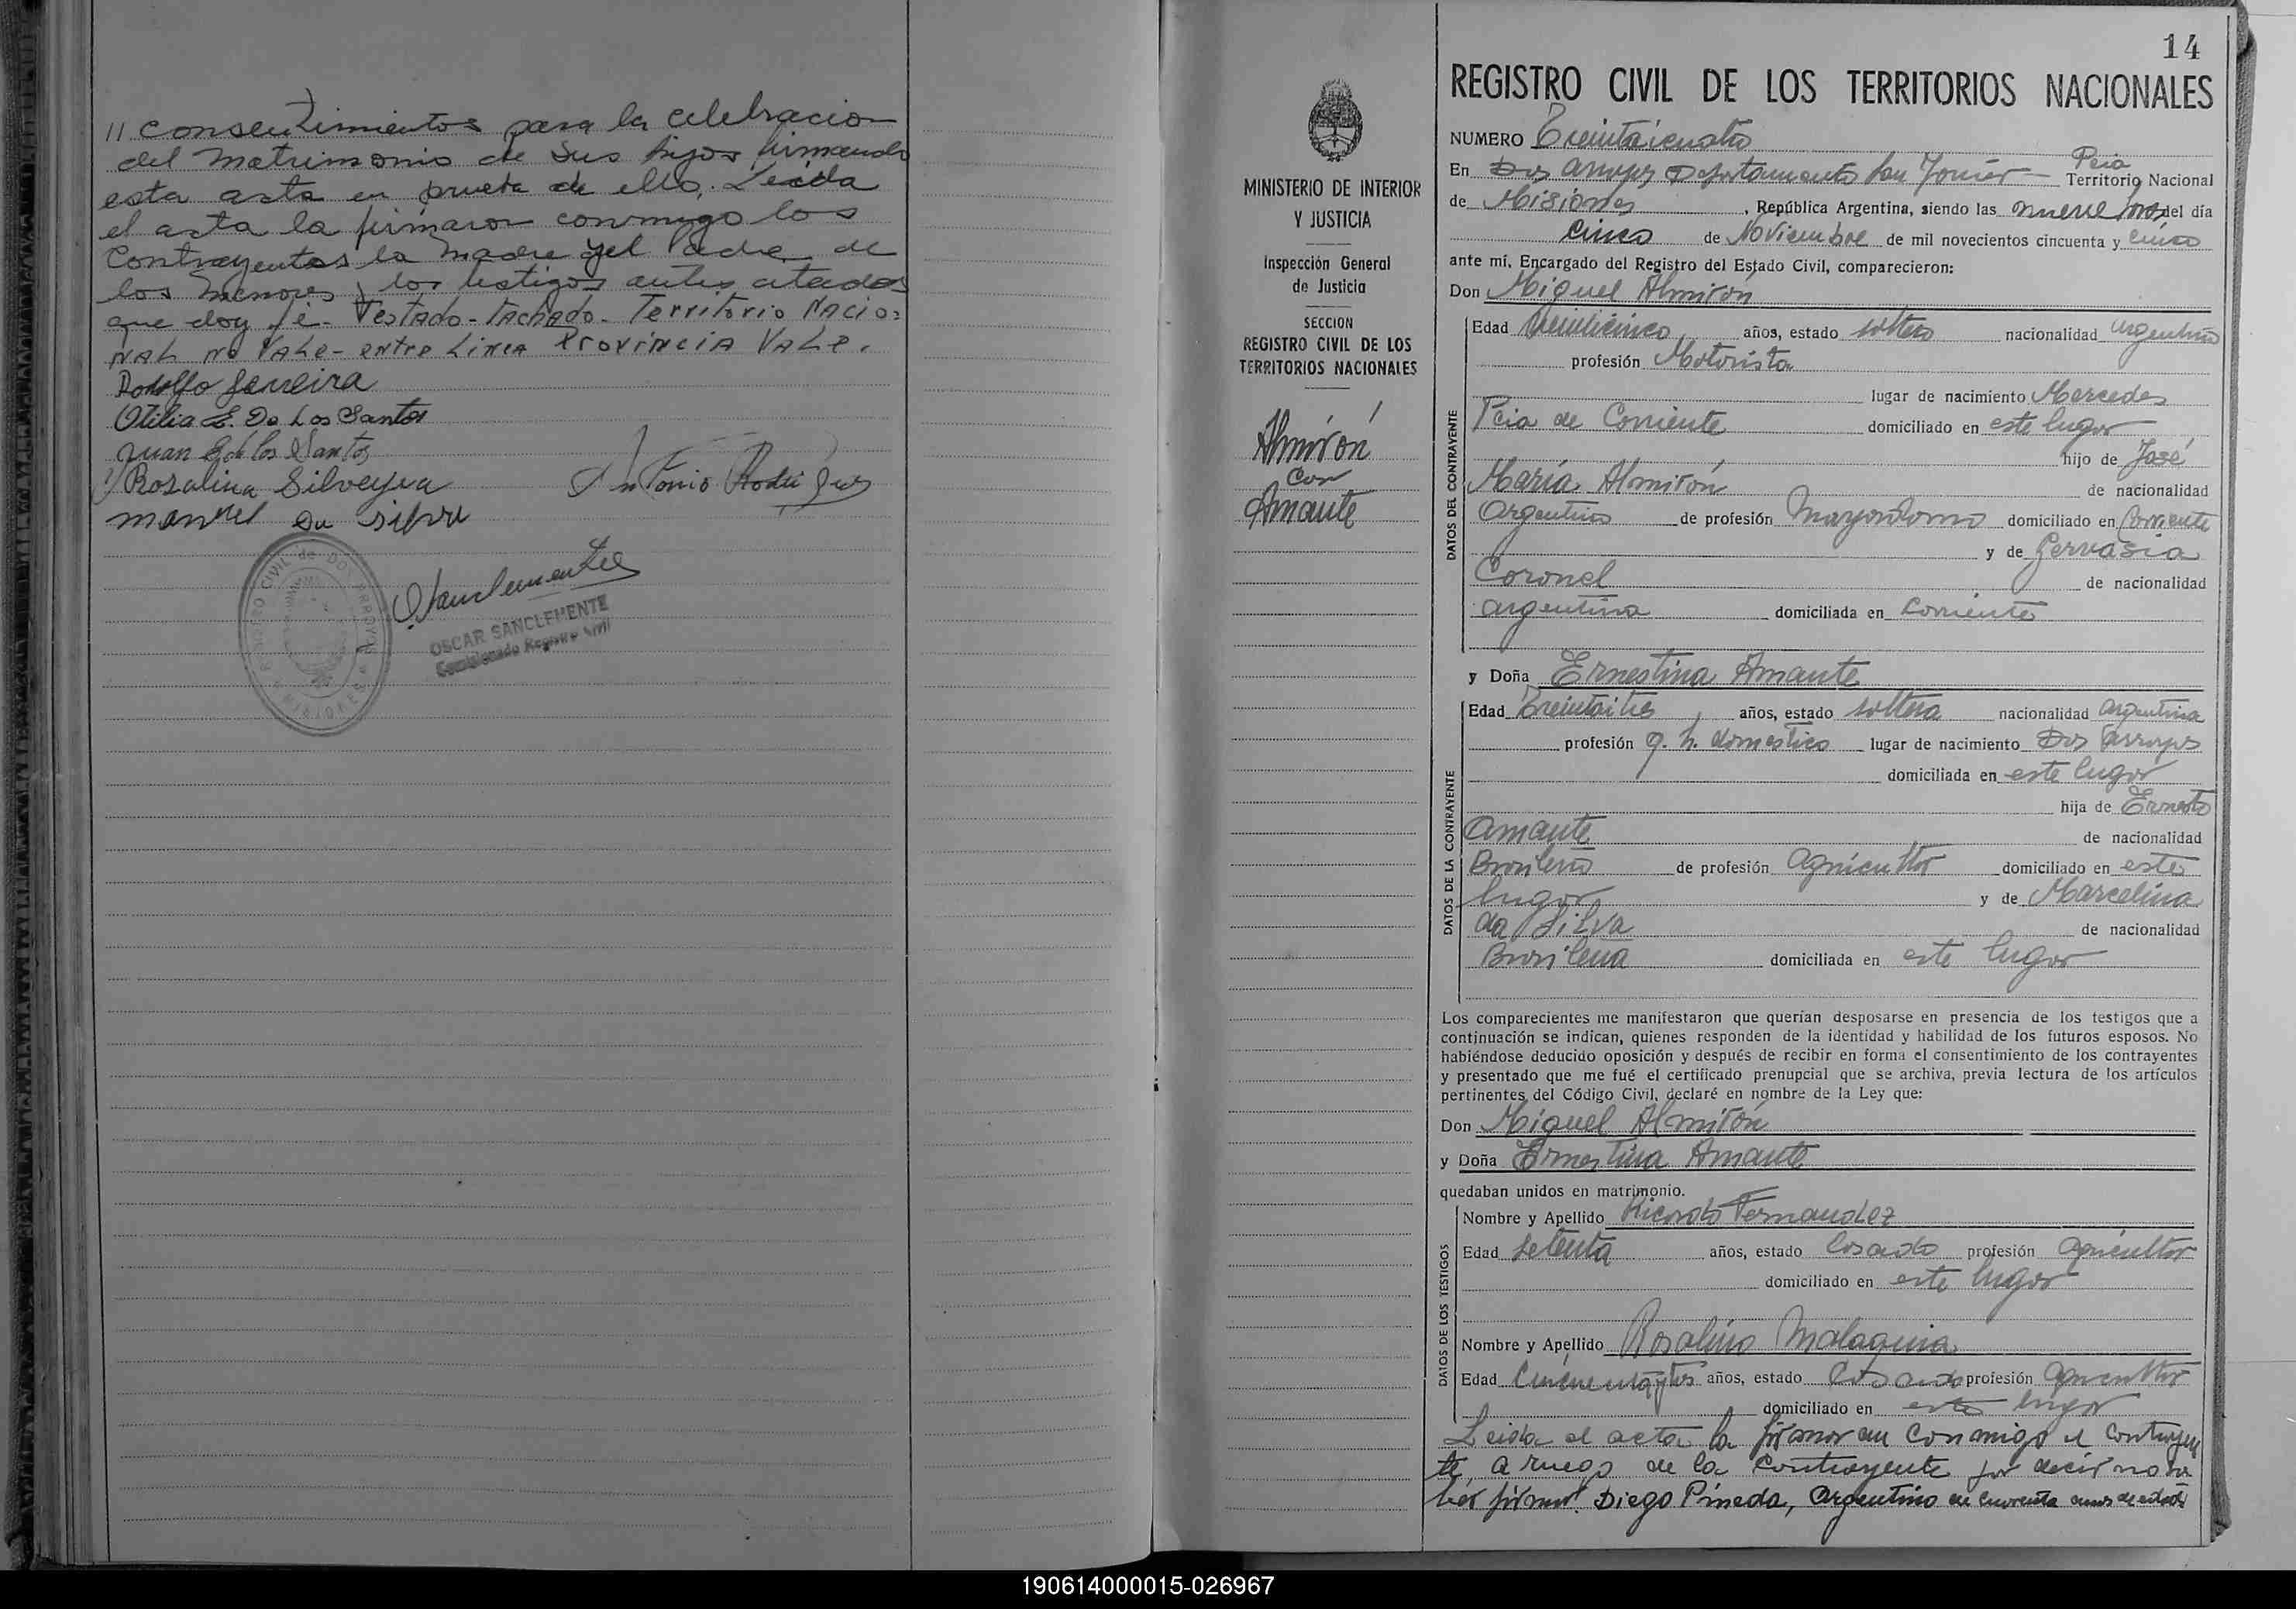 // consentimientos para la celebracion
del matrimonio de sus hijos firmando
esta acta en prueba de ello. Leida
el acta la firmaron conmigo los
Contrayentes la madre y el Padre de
los menores y los testigos antes citados
que doy fé - Testado - tachado - Territorio Nacio=
nal no vale - entre Linea Provincia Vale.
Rodolfo Ferreira
Otilia E. De Los Santos
Juan E de los Santos
Rosalina Silveyra
Antonio Rodriguez
manuel Da silva
REGISTRO CIVIL de DOS ARROYOS
MISIONES
OSCAR SANCLEMENTE
Comisionado Registro Civil
14
MINISTERIO DE INTERIOR
Y JUSTICIA
Inspección General
de Justicia
SECCION
REGISTRO CIVIL DE LOS
TERRITORIOS NACIONALES
Almirón
Con
Amante
REGISTRO CIVIL DE LOS TERRITORIOS NACIONALES
NUMERO Treintaicuatro
Pcia
En Dos arroyos Departamento San Javier Territorio Nacional
de Misiones, República Argentina, siendo las nueve horas del día
cinco de Noviembre de mil novecientos cincuenta y cinco
ante mí, Encargado del Registro del Estado Civil, comparecieron:
Don Miguel Almirón
DATOS DEL CONTRAYENTE
Edad Veinticinco años, estado soltero nacionalidad argentino
profesión Motorista
lugar de nacimiento Mercedes
Pcia de Corriente domiciliado en este lugar
hijo de José
María Almirón de nacionalidad
argentino de profesión Mayordomo domiciliado en Corriente
y de Gervasia
Coronel de nacionalidad
argentina domiciliada en Corriente
y Doña Ernestina Amante
DATOS DE LA CONTRAYENTE
Edad Treintaitres años, estado soltera nacionalidad argentina
profesión q. h. domestico lugar de nacimiento Dos Arroyos
domiciliada en este lugar
hija de Ernesto
Amante de nacionalidad
Brasilero de profesión agricultor domiciliado en este
lugar y de Marcelina
da Silva de nacionalidad
Brasilena domiciliada en este lugar
Los comparecientes me manifestaron que querían desposarse en presencia de los testigos que a
continuación se indican, quienes responden de la identidad y habilidad de los futuros esposos. No
habiéndose deducido oposición y después de recibir en forma el consentimiento de los contrayentes
y presentado que me fué el certificado prenupcial que se archiva, previa lectura de los artículos
pertinentes del Código Civil, declaré en nombre de la Ley que:
Don Miguel Almirón
y Doña Ernestina Amante
quedaban unidos en matrimonio.
DATOS DE LOS TESTIGOS
Nombre y Apellido Ricardo Fernandez
Edad setenta años, estado Casado profesión agricultor
domiciliado en este lugar
Nombre y Apellido Rosalino Malaquia
Edad Cincuentaytres años, estado Casado profesión agricultor
domiciliado en este lugar
Leida el acta la firmaron conmigo el contrayen
te, a ruego de la contrayente por decir no sa
ber firmar Diego Pineda, argentino de cuarenta anos de edad
190614000015-026967